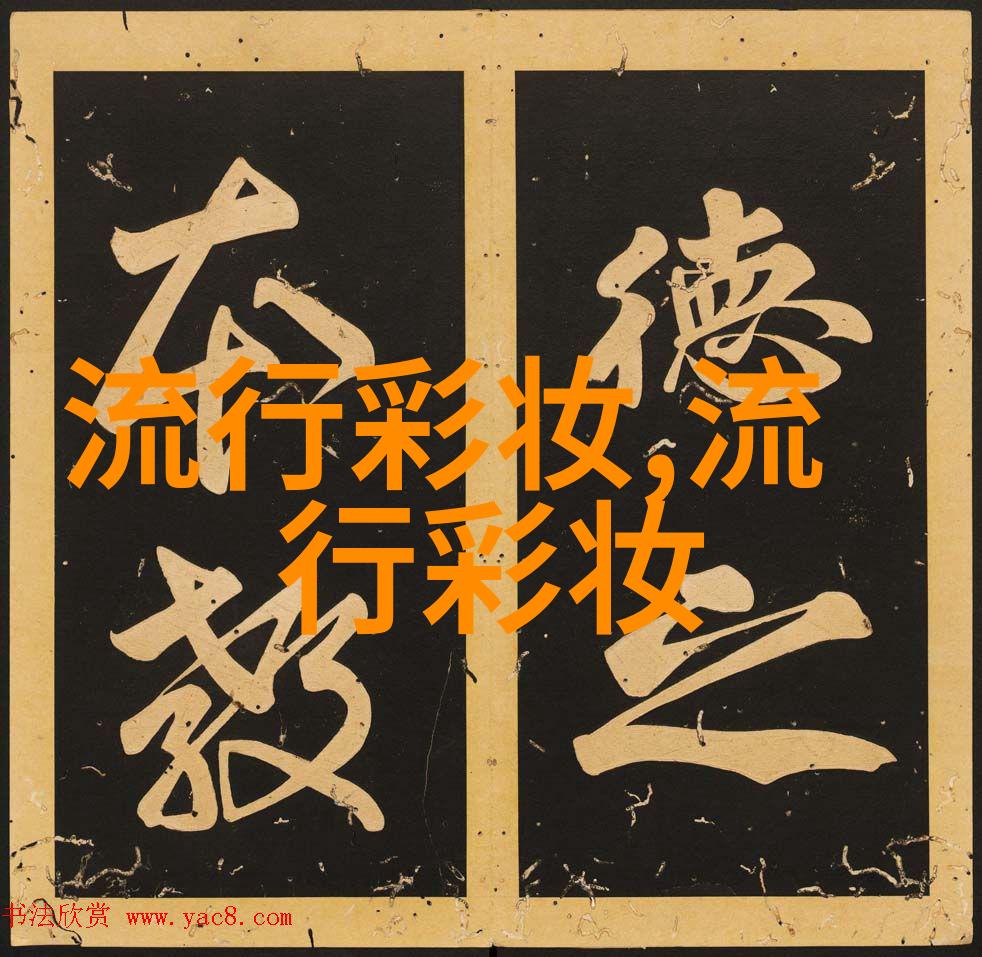 德之
本教
流行彩妆,流
行彩妆
书法欣赏 www.yac8.com